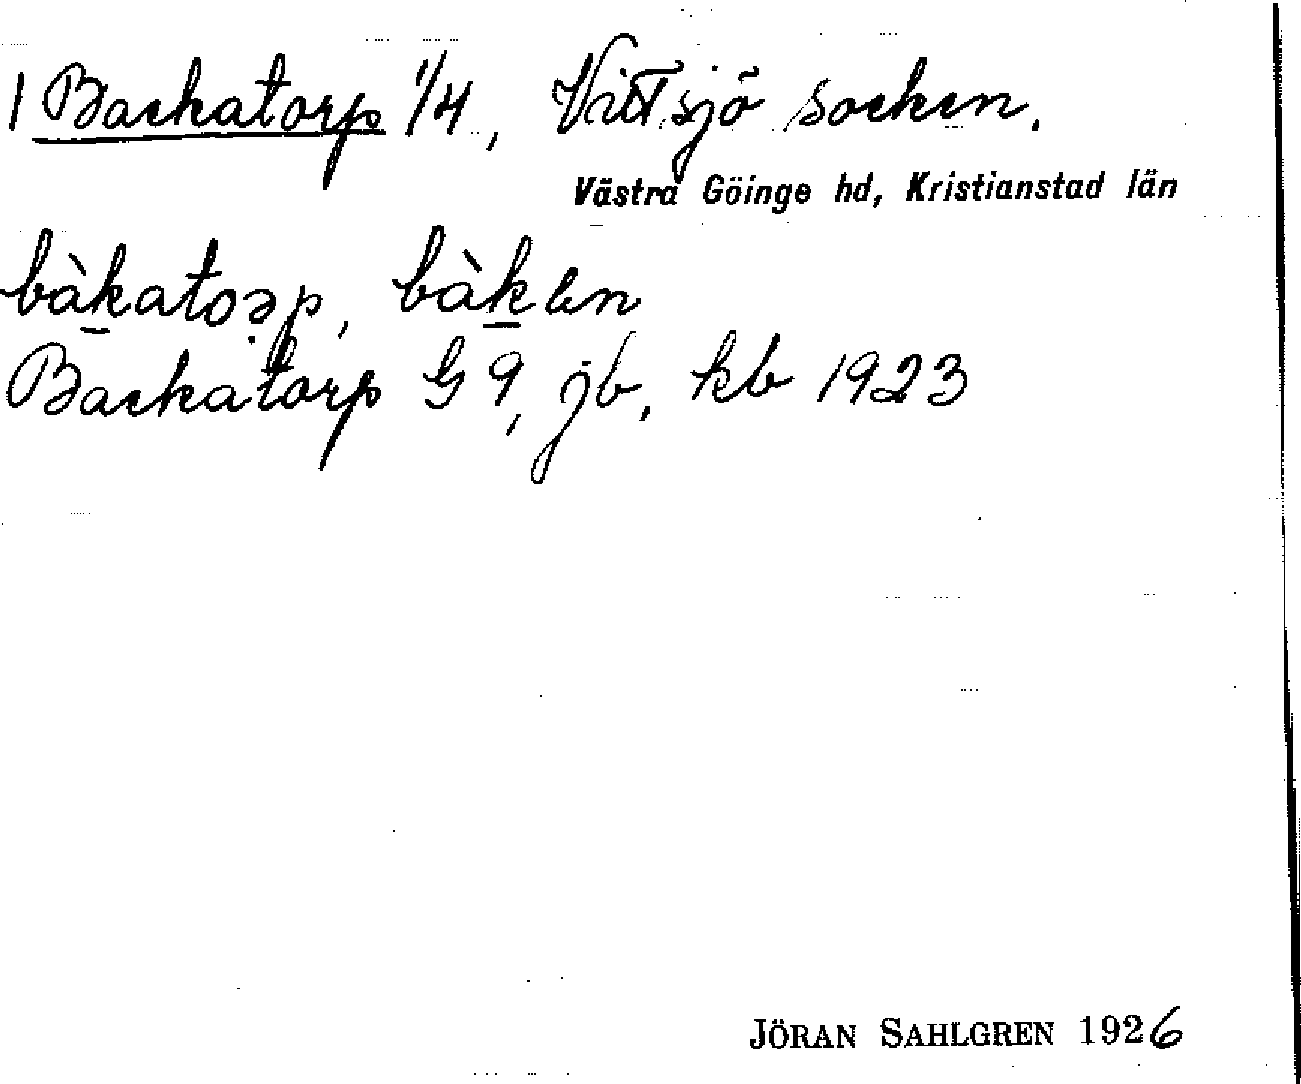 1 Backatorp 1/4, Vittsjö socken.
Västra Göinge hd, Kristianstad län
bàkatoəp, bàken
Backatorp G 9, jb, kb 1923
JÖRAN SAHLGREN 1926